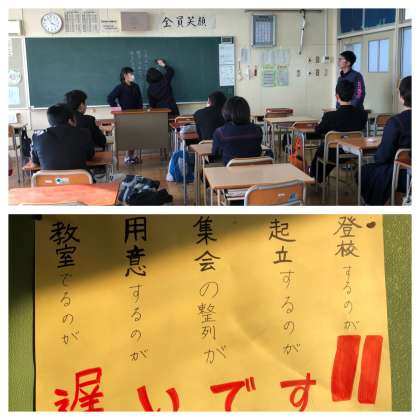 全員笑顔
登校するのが
起立するのが
集会の整列が
用意するのが
教室でるのが
遅いです!!